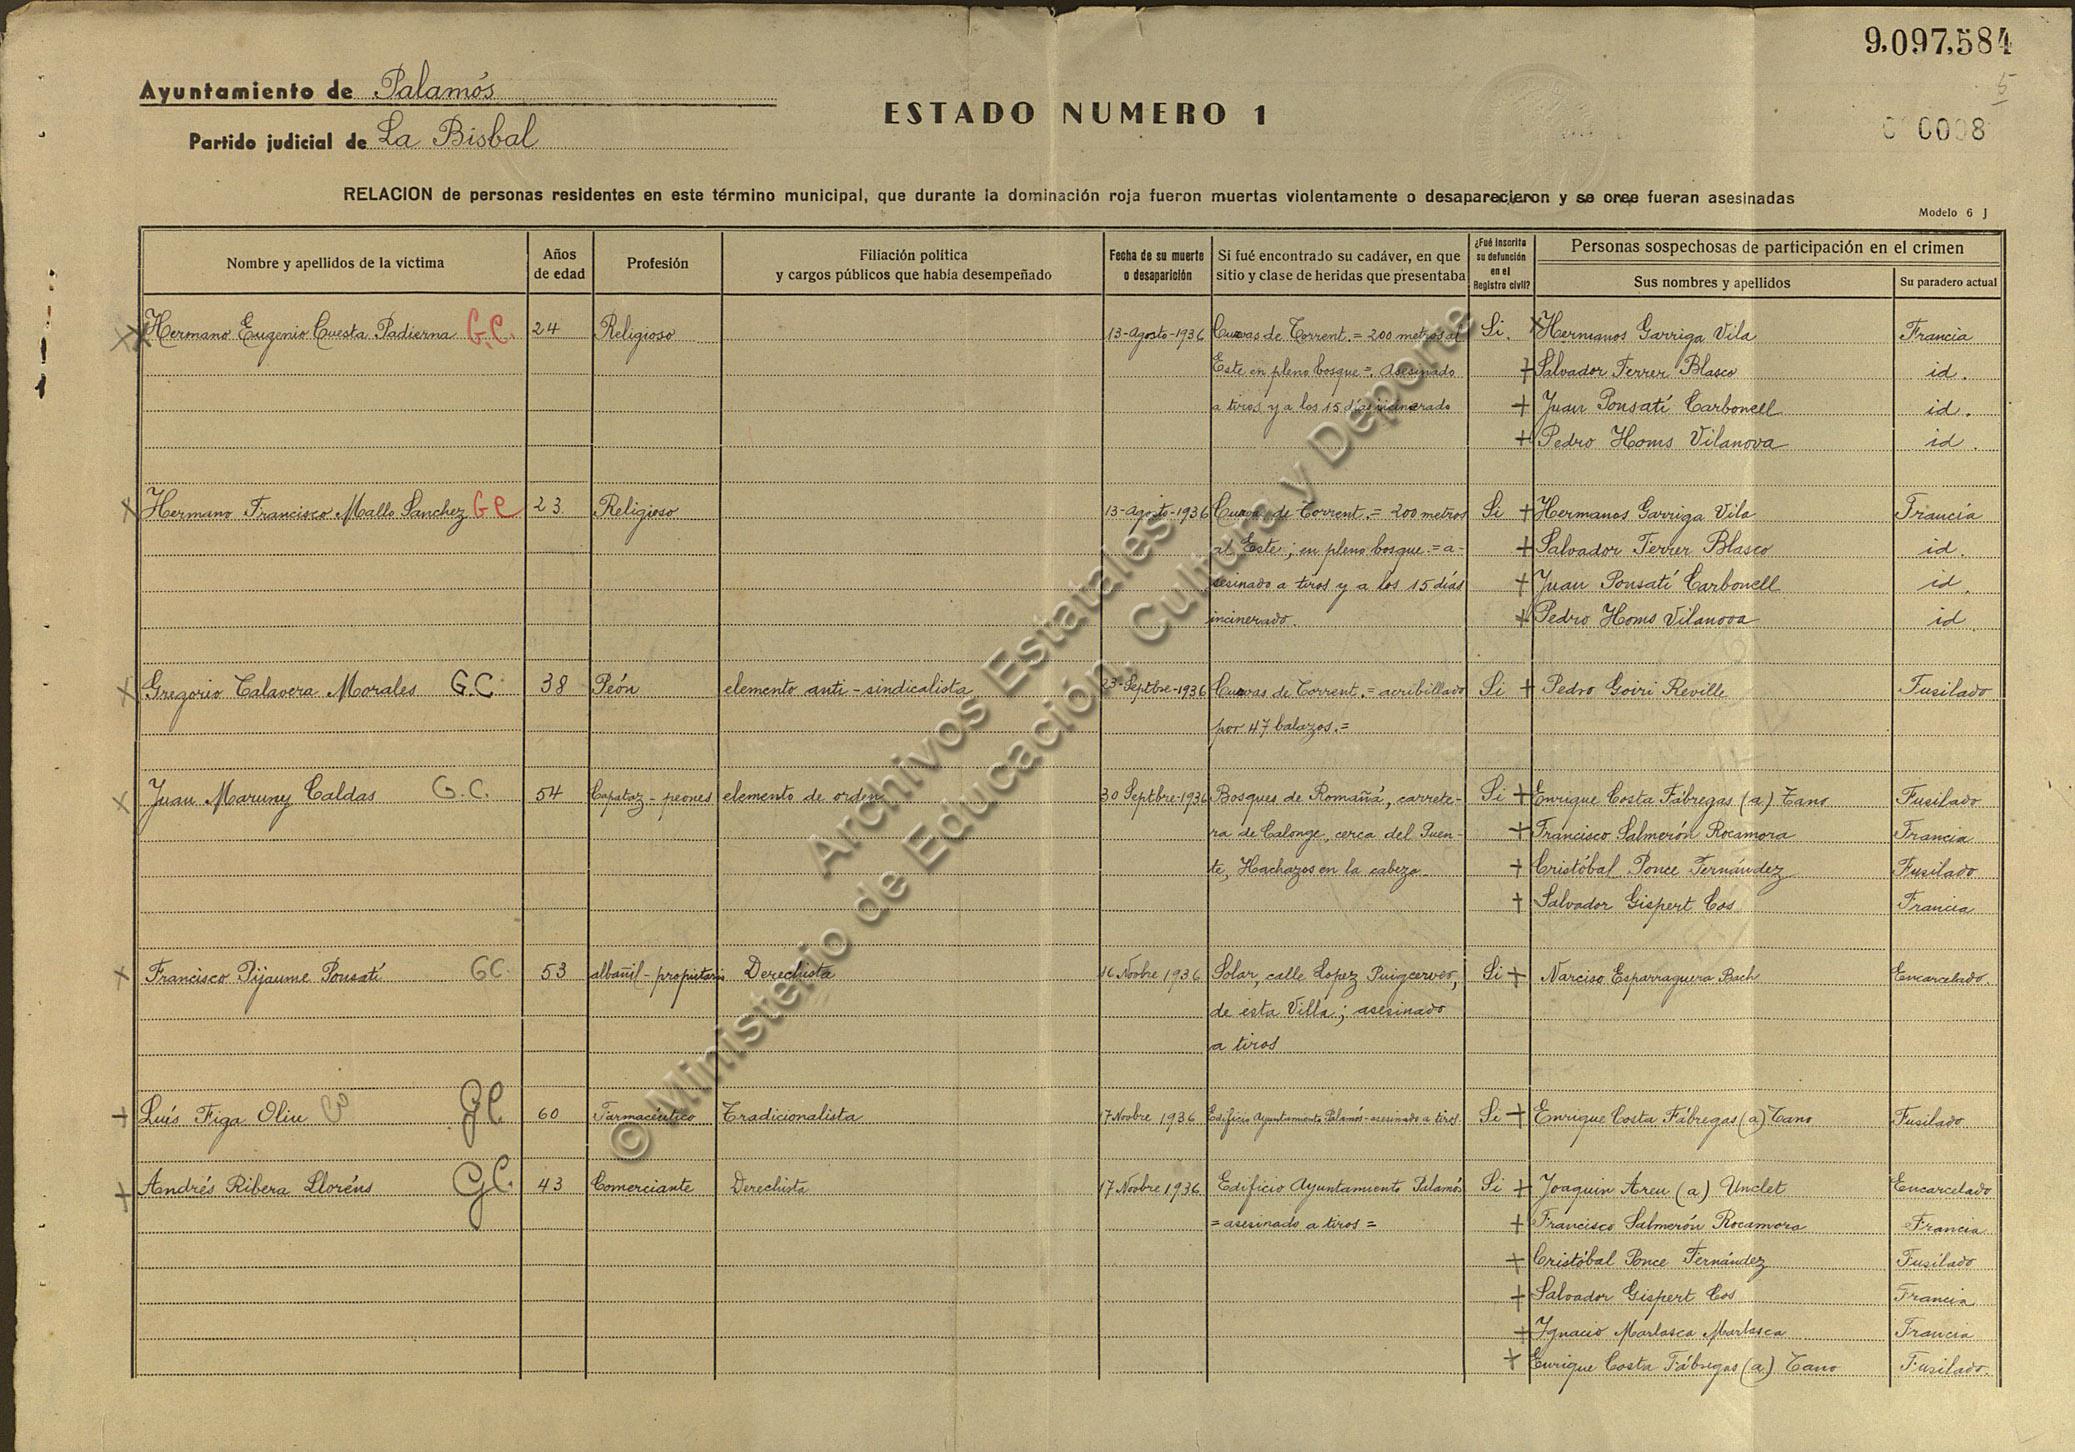 9,097,584
5
Ayuntamiento de Palamós
ESTADO NUMERO 1
0008
Partido judicial de La Bisbal
RELACION de personas residentes en este término municipal, que durante la dominación roja fueron muertas violentamente o desaparecieron y se cree fueran asesinadas
Modelo 6 J
Nombre y apellidos de la víctima
Años de edad
Profesión
Filiación política y cargos públicos que había desempeñado
Fecha de su muerte o desaparición
Si fué encontrado su cadáver, en que sitio y clase de heridas que presentaba
¿Fué inscrita su defunción en el Registro civil?
Personas sospechosas de participación en el crimen
Sus nombres y apellidos
Su paradero actual
Hermano Eugenio Cuesta Padierna G.C. 24 Religioso 13-Agosto-1936 Cuevas de Torrent.= 200 metros al Si. Hermanos Garriga Vila Francia
Este en pleno bosque =. Asesinado Salvador Ferrer Blasco id.
a tiros y a los 15 días incinerado Juan Ponsatí Carbonell id.
Pedro Homs Vilanova id
Hermano Francisco Mallo Sanchez G C 23. Religioso 13-Agosto-1936 Cueva de Torrent.= 200 metros Si Hermanos Garriga Vila Francia
al Este; en pleno bosque.= a- Salvador Ferrer Blasco id.
sesinado a tiros y a los 15 días Juan Ponsatí Carbonell id.
incinerado. Pedro Homs Vilanova id
Gregorio Talavera Morales G.C. 38 Peón elemento anti-sindicalista 23-Septbre-1936 Cuevas de Torrent.= acribillado Si Pedro Goiri Reville Fusilado
por 47 balazos.=
Juan Maruny Caldas G.C. 54 Capataz-peones elemento de orden 30 Septbre-1936 Bosques de Romañá, carrete- Si Enrique Costa Fábregas (a) Tano Fusilado
ra de Calonge, cerca del Puen- Francisco Salmerón Rocamora Francia
te, Hachazos en la cabeza Cristóbal Ponce Fernández Fusilado
Salvador Gispert Cos Francia
Francisco Pijaume Ponsatí G C. 53 albañil-propietario Derechista 16 Novbre 1936 Solar, calle Lopez Puigcerver, Si Narciso Esparraguera Bach Encarcelado.
de esta Villa; asesinado
a tiros
Luís Figa Oliu G C 60 Farmacéutico Tradicionalista 17 Novbre 1936 Edificio Ayuntamiento Palamós-asesinado a tiros. Si Enrique Costa Fábregas (a) Tano Fusilado
Andrés Ribera Lloréns G C. 43 Comerciante Derechista 17 Novbre 1936 Edificio Ayuntamiento Palamós Si Joaquin Areu (a) Unclet Encarcelado
= asesinado a tiros = Francisco Salmerón Rocamora Francia
Cristóbal Ponce Fernández Fusilado
Salvador Gispert Cos Francia
Ignacio Marlasca Marlasca Francia
Enrique Costa Fábregas (a) Tano Fusilado.
Archivos Estatales
© Ministerio de Educación, Cultura y Deporte